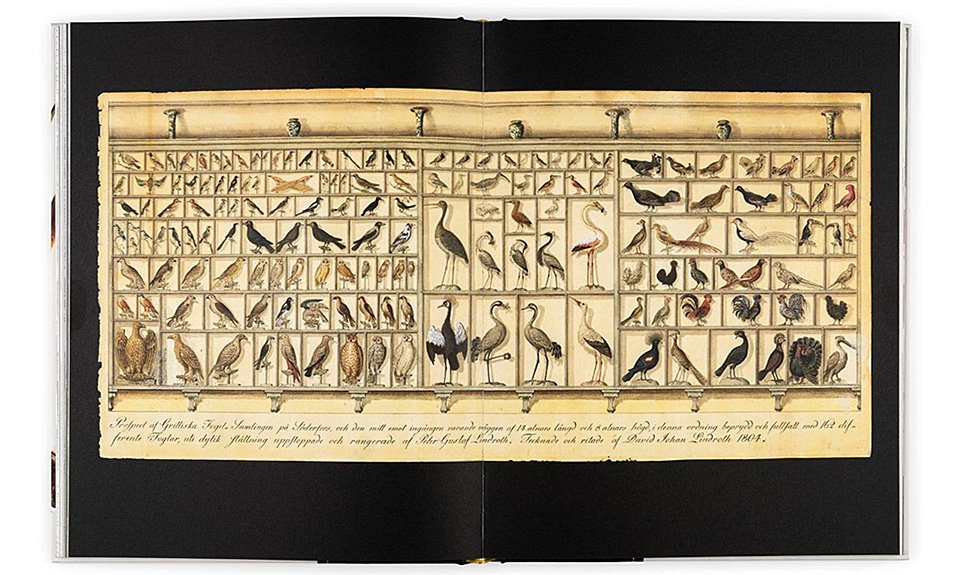 Prospect af Grilliska Fogel-Samlingen på Söderfors, och den mitt emot ingången varande väggen af 14 alnars längd och 8 alnars högd, i denna ordning beprydd och fullsatt med 162 dif-
ferente Foglar, uti dylik ställning uppstoppade och rangerade af Pehr Gustaf Lindroth. Tecknade och ritade af David Johan Lindroth 1804.